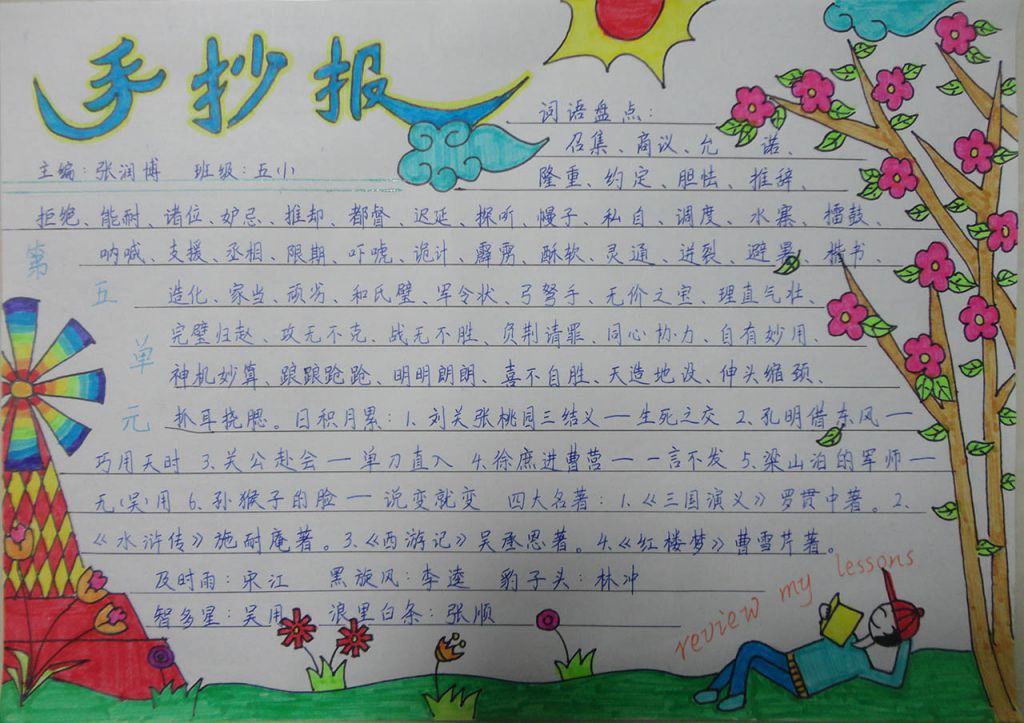 手抄报
词语盘点：
召集、商议、允 诺、
主编：张润博 班级：五小
隆重、约定、胆怯、推辞、
拒绝、能耐、诸位、妒忌、推却、都督、迟延、探听、幔子、私自、调度、水寨、擂鼓、
呐喊、支援、丞相、限期、吓唬、诡计、霹雳、酥软、灵通、迸裂、避暑、楷书、
造化、家当、顽劣、和氏璧、军令状、弓弩手、无价之宝、理直气壮、
完璧归赵、攻无不克、战无不胜、负荆请罪、同心协力、自有妙用、
神机妙算、踉踉跄跄、明明朗朗、喜不自胜、天造地设、伸头缩颈、
抓耳挠腮。日积月累：1.刘关张桃园三结义一生死之交 2.孔明借东风一
巧用天时 3.关公赴会一单刀直入 4.徐庶进曹营一一言不发 5.梁山泊的军师一
无（吴）用 6.孙猴子的脸一说变就变 四大名著：1.《三国演义》罗贯中著。2.
《水浒传》施耐庵著。3.《西游记》吴承恩著。4.《红楼梦》曹雪芹著。
及时雨：宋江 黑旋风：李逵 豹子头：林冲
智多星：吴用 浪里白条：张顺
第五单元
review my lessons